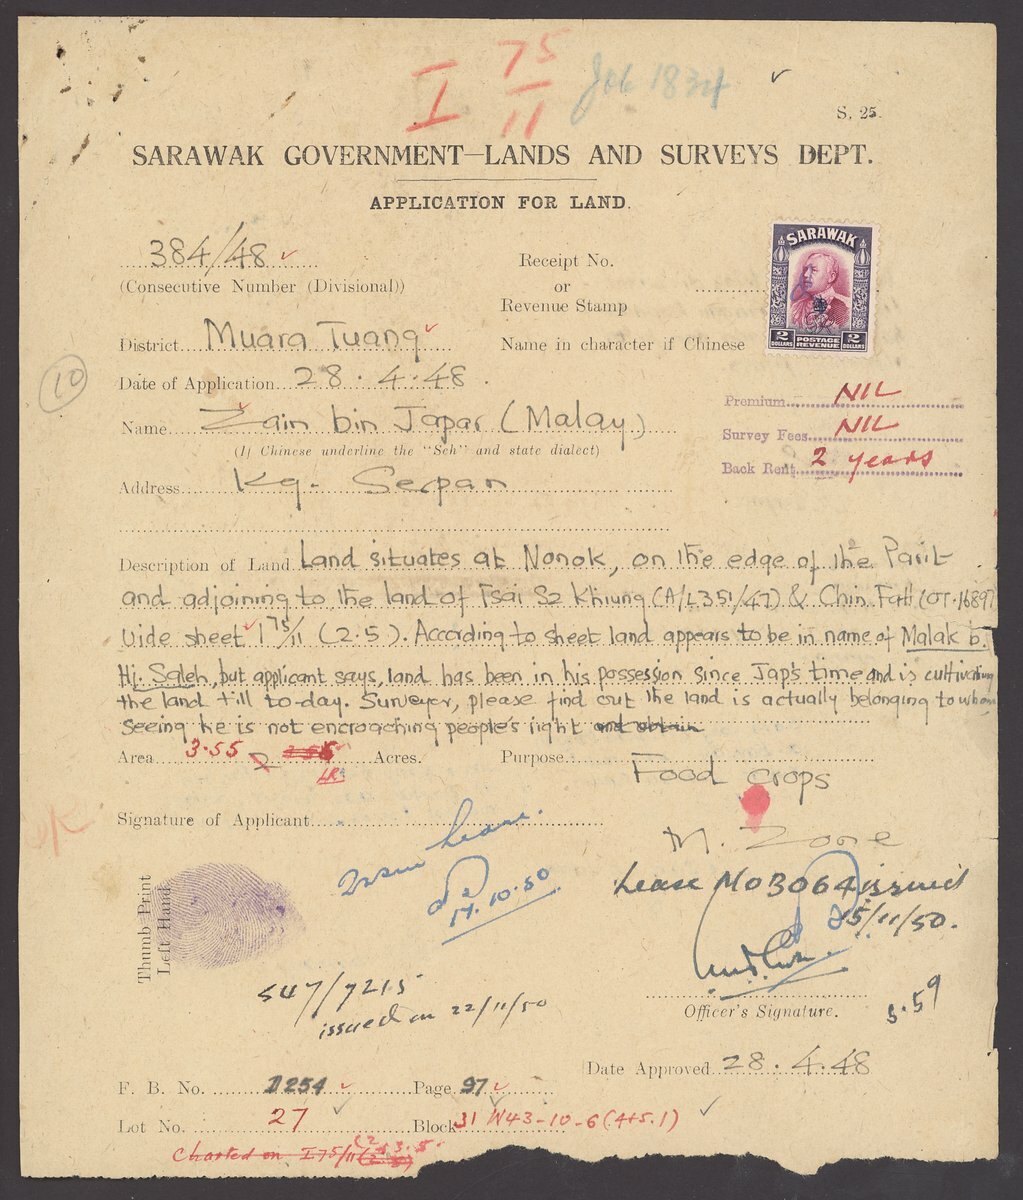 I 75/11 Job 1834
S. 25.
SARAWAK GOVERNMENT—LANDS AND SURVEYS DEPT.
APPLICATION FOR LAND.
384/48
(Consecutive Number (Divisional))
Receipt No.
or
Revenue Stamp
SARAWAK
2 DOLLARS POSTAGE REVENUE 2 DOLLARS
District Muara Tuang
Name in character if Chinese
10
Date of Application 28.4.48.
Premium NIL
Name Zain bin Japar (Malay)
Survey Fees NIL
(If Chinese underline the "Seh" and state dialect)
Back Rent 2 years
Address Kg. Serpan
Description of Land Land situates at Nonok, on the edge of the Parit
and adjoining to the land of Tsai Sz Khiung (A/L351/47) & Chin Fah (OT.1689)
Vide sheet 1 75/11 (2.5). According to sheet land appears to be in name of Malak b.
Hj. Saleh, but applicant says, land has been in his possession since Jap's time and is cultivating
the land till to-day. Surveyor, please find out the land is actually belonging to whom
seeing he is not encroaching people's right and obtain
Area 3.55 Acres. Purpose Food crops
Signature of Applicant
Issue lease.
17.10.50
Lease No 3064 issued
25/11/50.
Thumb Print
Left Hand.
547/7215
issued on 22/11/50
Officer's Signature.
5.59
Date Approved 28.4.48
F. B. No. D254 Page 97
Lot No. 27 Block 31 N43-10-6 (4+5.1)
Charted on I 75/11